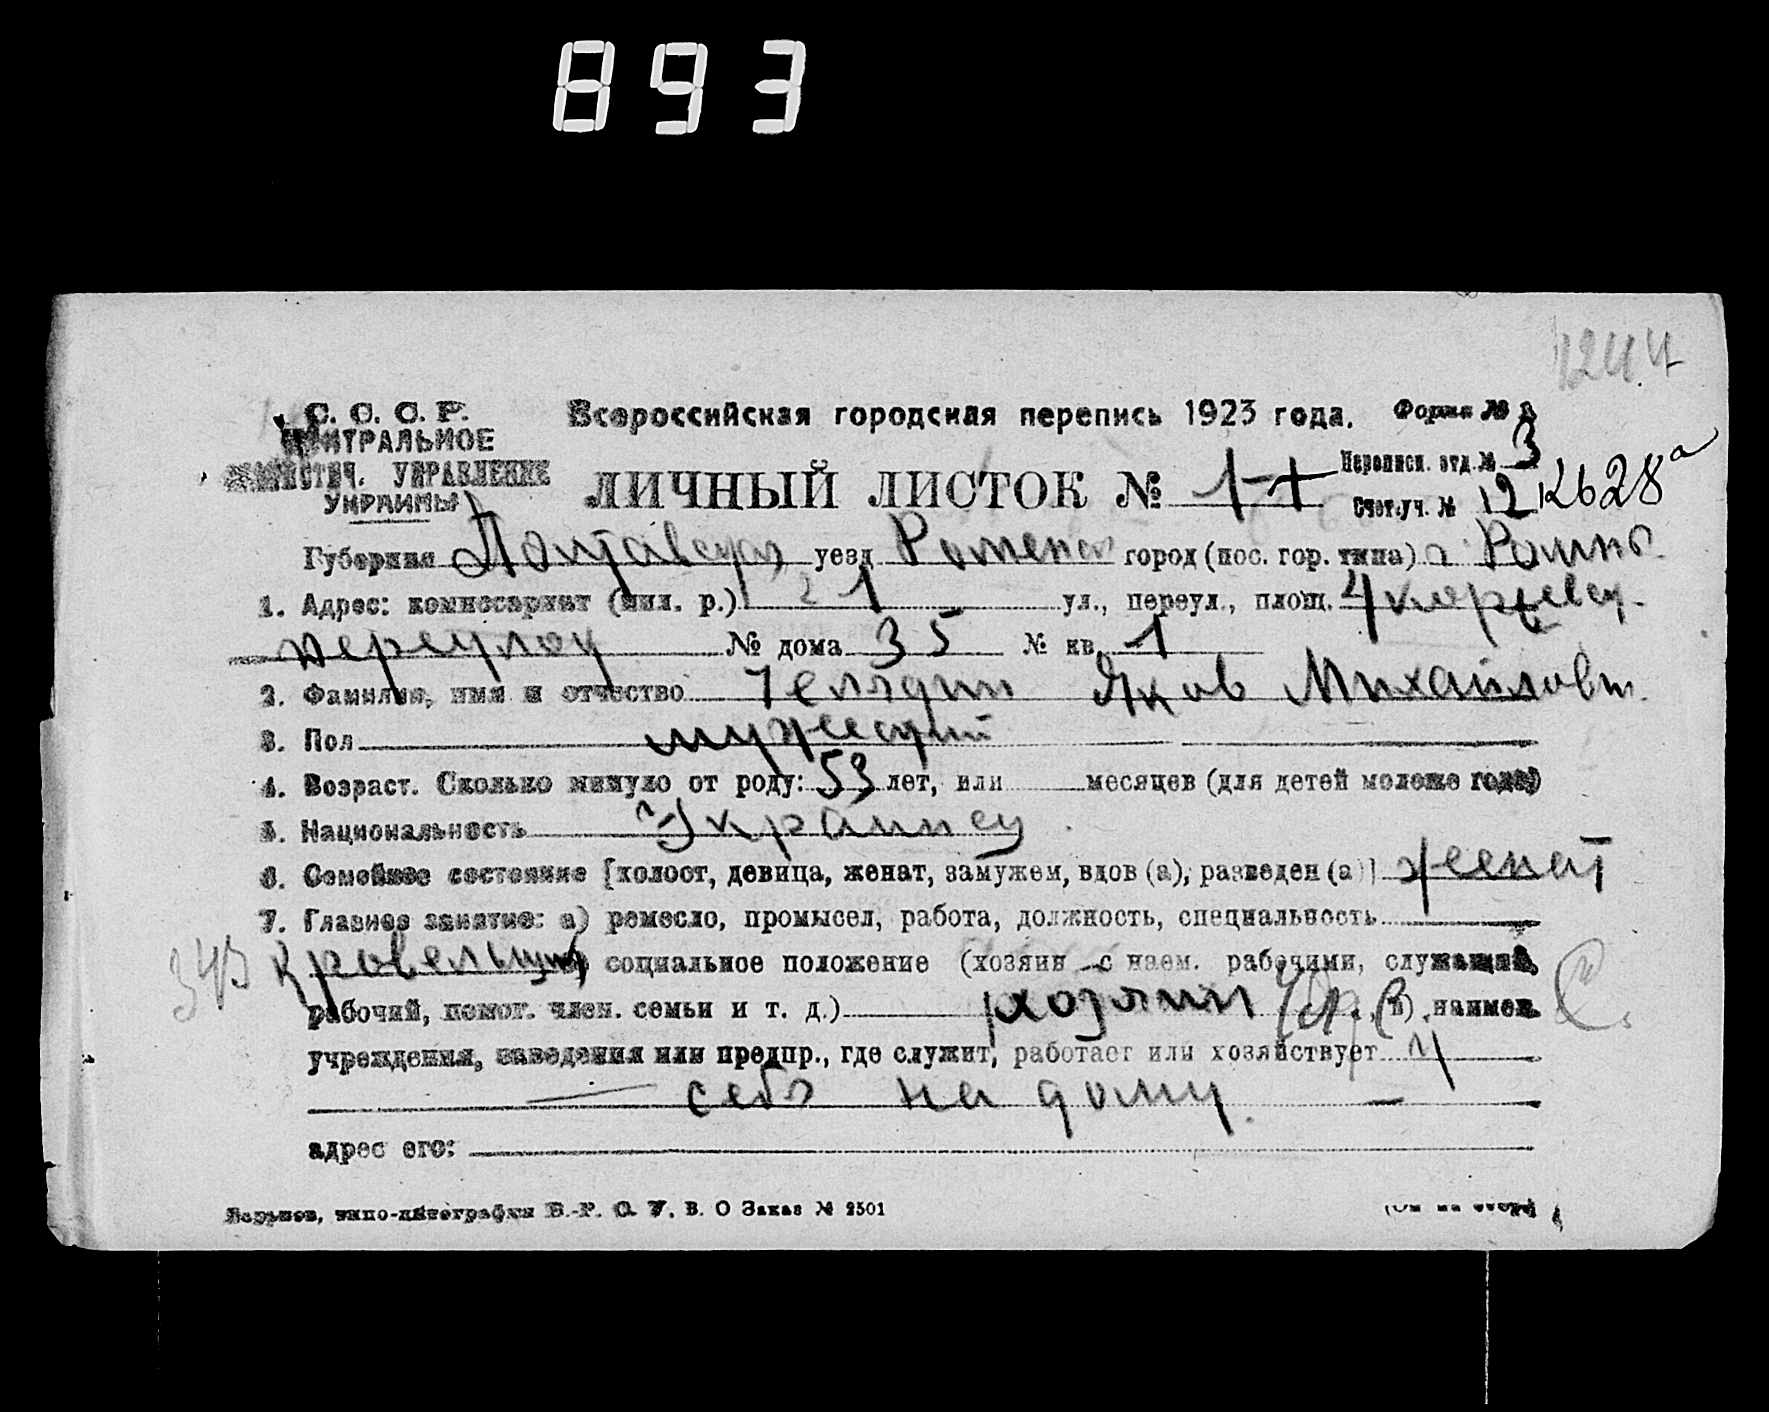 893
1244
С. С. С. Р. Всероссийская городская перепись 1923 года. Форма №
ЦЕНТРАЛЬНОЕ
СТАТИСТИЧ. УПРАВЛЕНИЕ ЛИЧНЫЙ ЛИСТОК № 1 Переписн. отд. № 3
УКРАИНЫ Счетн. уч. № 12 12628а
Губерния Полтавская уезд Роменск город (пос. гор. типа) г. Ромны
1. Адрес: комиссариат (мил. р.) 1 ул., переул., площ. 4
переулок № дома 35 № кв. 1
2. Фамилия, имя и отчество Челядин Яков Михайлович
3. Пол мужеский
4. Возраст. Сколько минуло от роду: 53 лет, или месяцев (для детей моложе года)
5. Национальность Украинец
6. Семейное состояние [холост, девица, женат, замужем, вдов (а), разведен (а)] женат
7. Главное занятие: а) ремесло, промысел, работа, должность, специальность
343 кровельщик социальное положение (хозяин с наем. рабочими, служащий,
рабочий, помог. член. семьи и т. д.) хозяин в) наимен.
учреждения, заведения или предпр., где служит, работает или хозяйствует у
себя на дому.
адрес его:
Харьков, типо-литография В.-Р. С. У. В. О Заказ № 2501